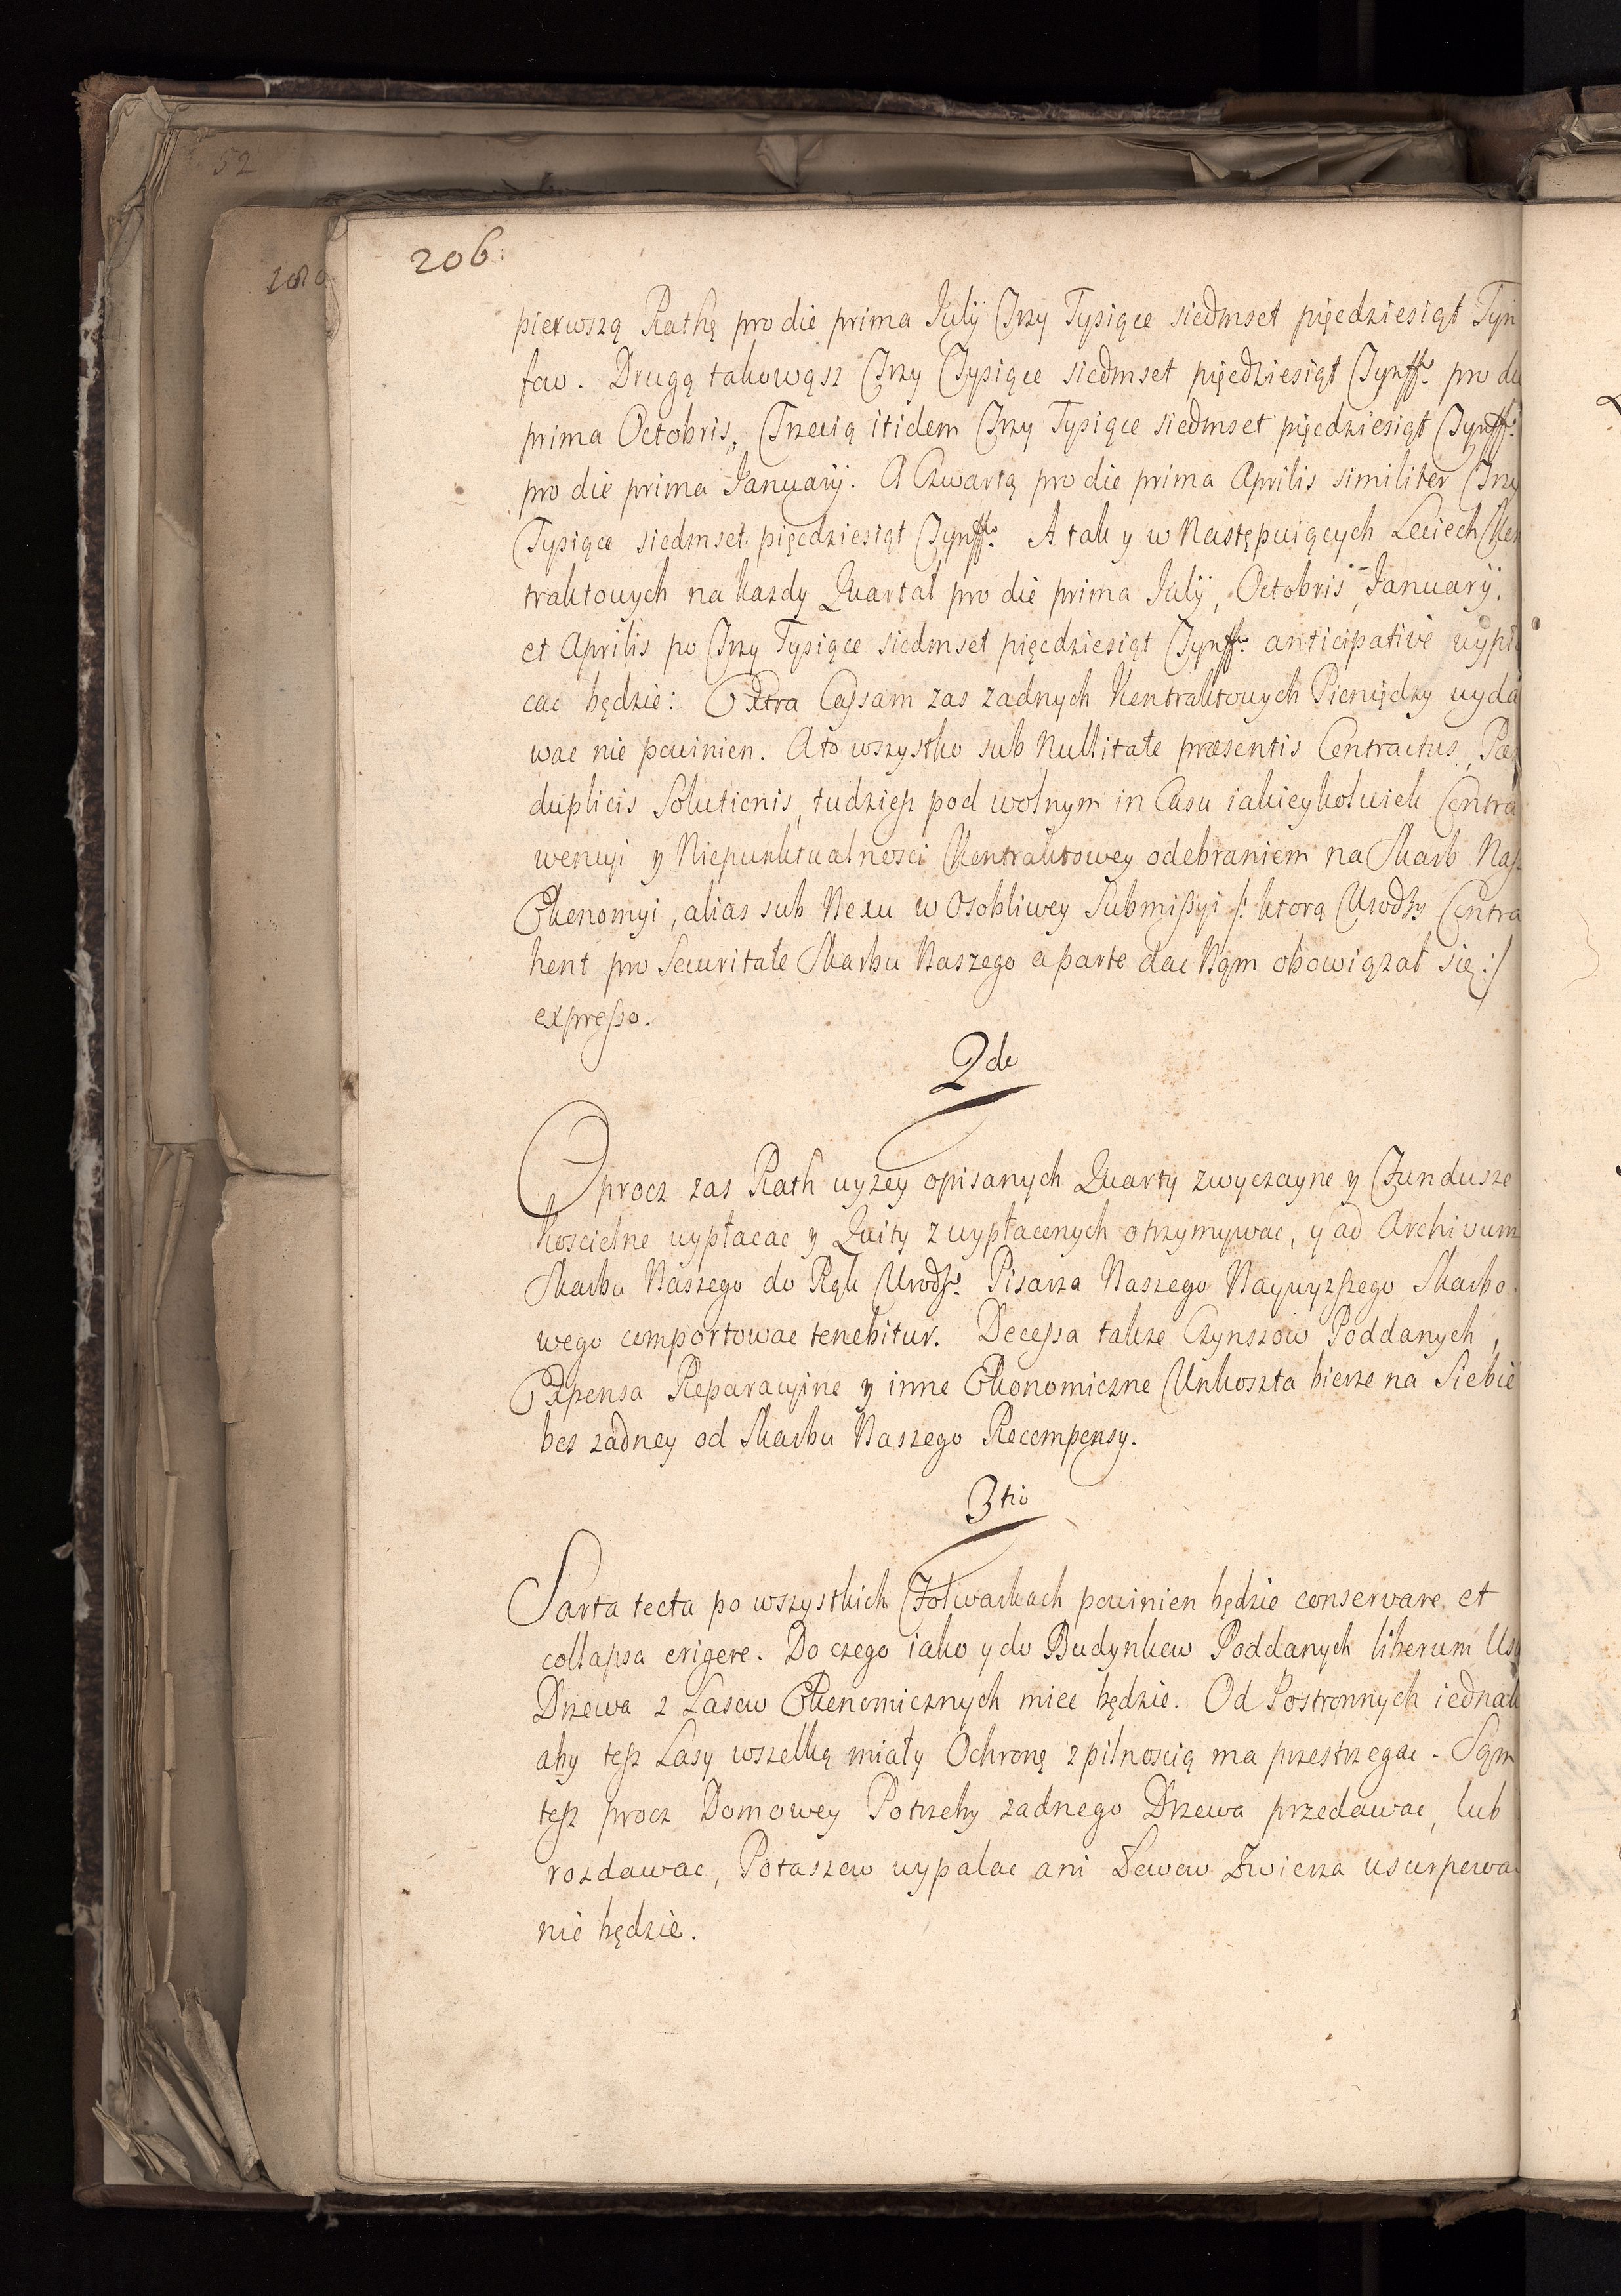 52
206.
pierwszą Rathę pro die prima Julÿ Trzy Tysiące siedmset pięcdziesiąt Tyn
fow. Drugą takowąsz Trzy Tysiące siedmset pięcdziesiąt Tynff. pro die
prima Octobris, Trzecią itidem Trzy Tysiące siedmset pięcdziesiąt Tynff.
pro die prima Januarÿ. A Czwartą pro die prima Aprilis similiter Trzy
Tysiące siedmset pięcdziesiąt Tynff. A tak y w Następuiących Leciech Kon
traktowych na kazdy Quartał pro die prima Julÿ, Octobris, Januarÿ,
et Aprilis po Trzy Tysiące siedmset pięcdziesiąt Tynff. anticipative wypła
cac będzie: Extra Cassam zas zadnych Kontraktowych Pieniędzy wyda
wac nie powinien. A to wszystko sub Nullitate præsentis Contractus,
duplicis Solutionis, tudziesz pod wolnym in Casu iakieykolwiek Contra
wencyi y Niepunktualnosci Kontraktowey odebraniem na Skarb Nasz
Ekonomyi, alias sub Nexu w Osobliwey Submissyi /: ktorą Urodzy Contra
hent pro Securitate Skarbu Naszego aparte dac Nam obowiązał się :/
expresso.
2do
Oprocz zas Rath wyzey opisanych Quarty zwyczayne y Fundusze
Koscielne wypłacac y Quity z wypłaconych otrzymywac, y ad Archivum
Skarbu Naszego do Rąk Urodzo. Pisarza Naszego Naywyzszego Skarbo
wego comportowac tenebitur. Decessa takze Czynszow Poddanych,
Expensa Reparacyine y inne Ekonomiczne Unkoszta bierze na Siebie
bez zadney od Skarbu Naszego Recompensy.
3tio
Sarta tecta po wszystkich Folwarkach powinien będzie conservare et
collapsa erigere. Do czego iako y do Budynkow Poddanych liberum Usu
Drzewa z Lasow Ekonomicznych miec będzie. Od Postronnych iednak
aby tesz Lasy wszelką miały Ochronę z pilnoscią ma przestrzegac. Sam
tesz procz Domowey Potrzeby zadnego Drzewa przedawac, lub
rozdawac, Potaszow wypalac ani Łowow Zwierza usurpowac
nie będzie.